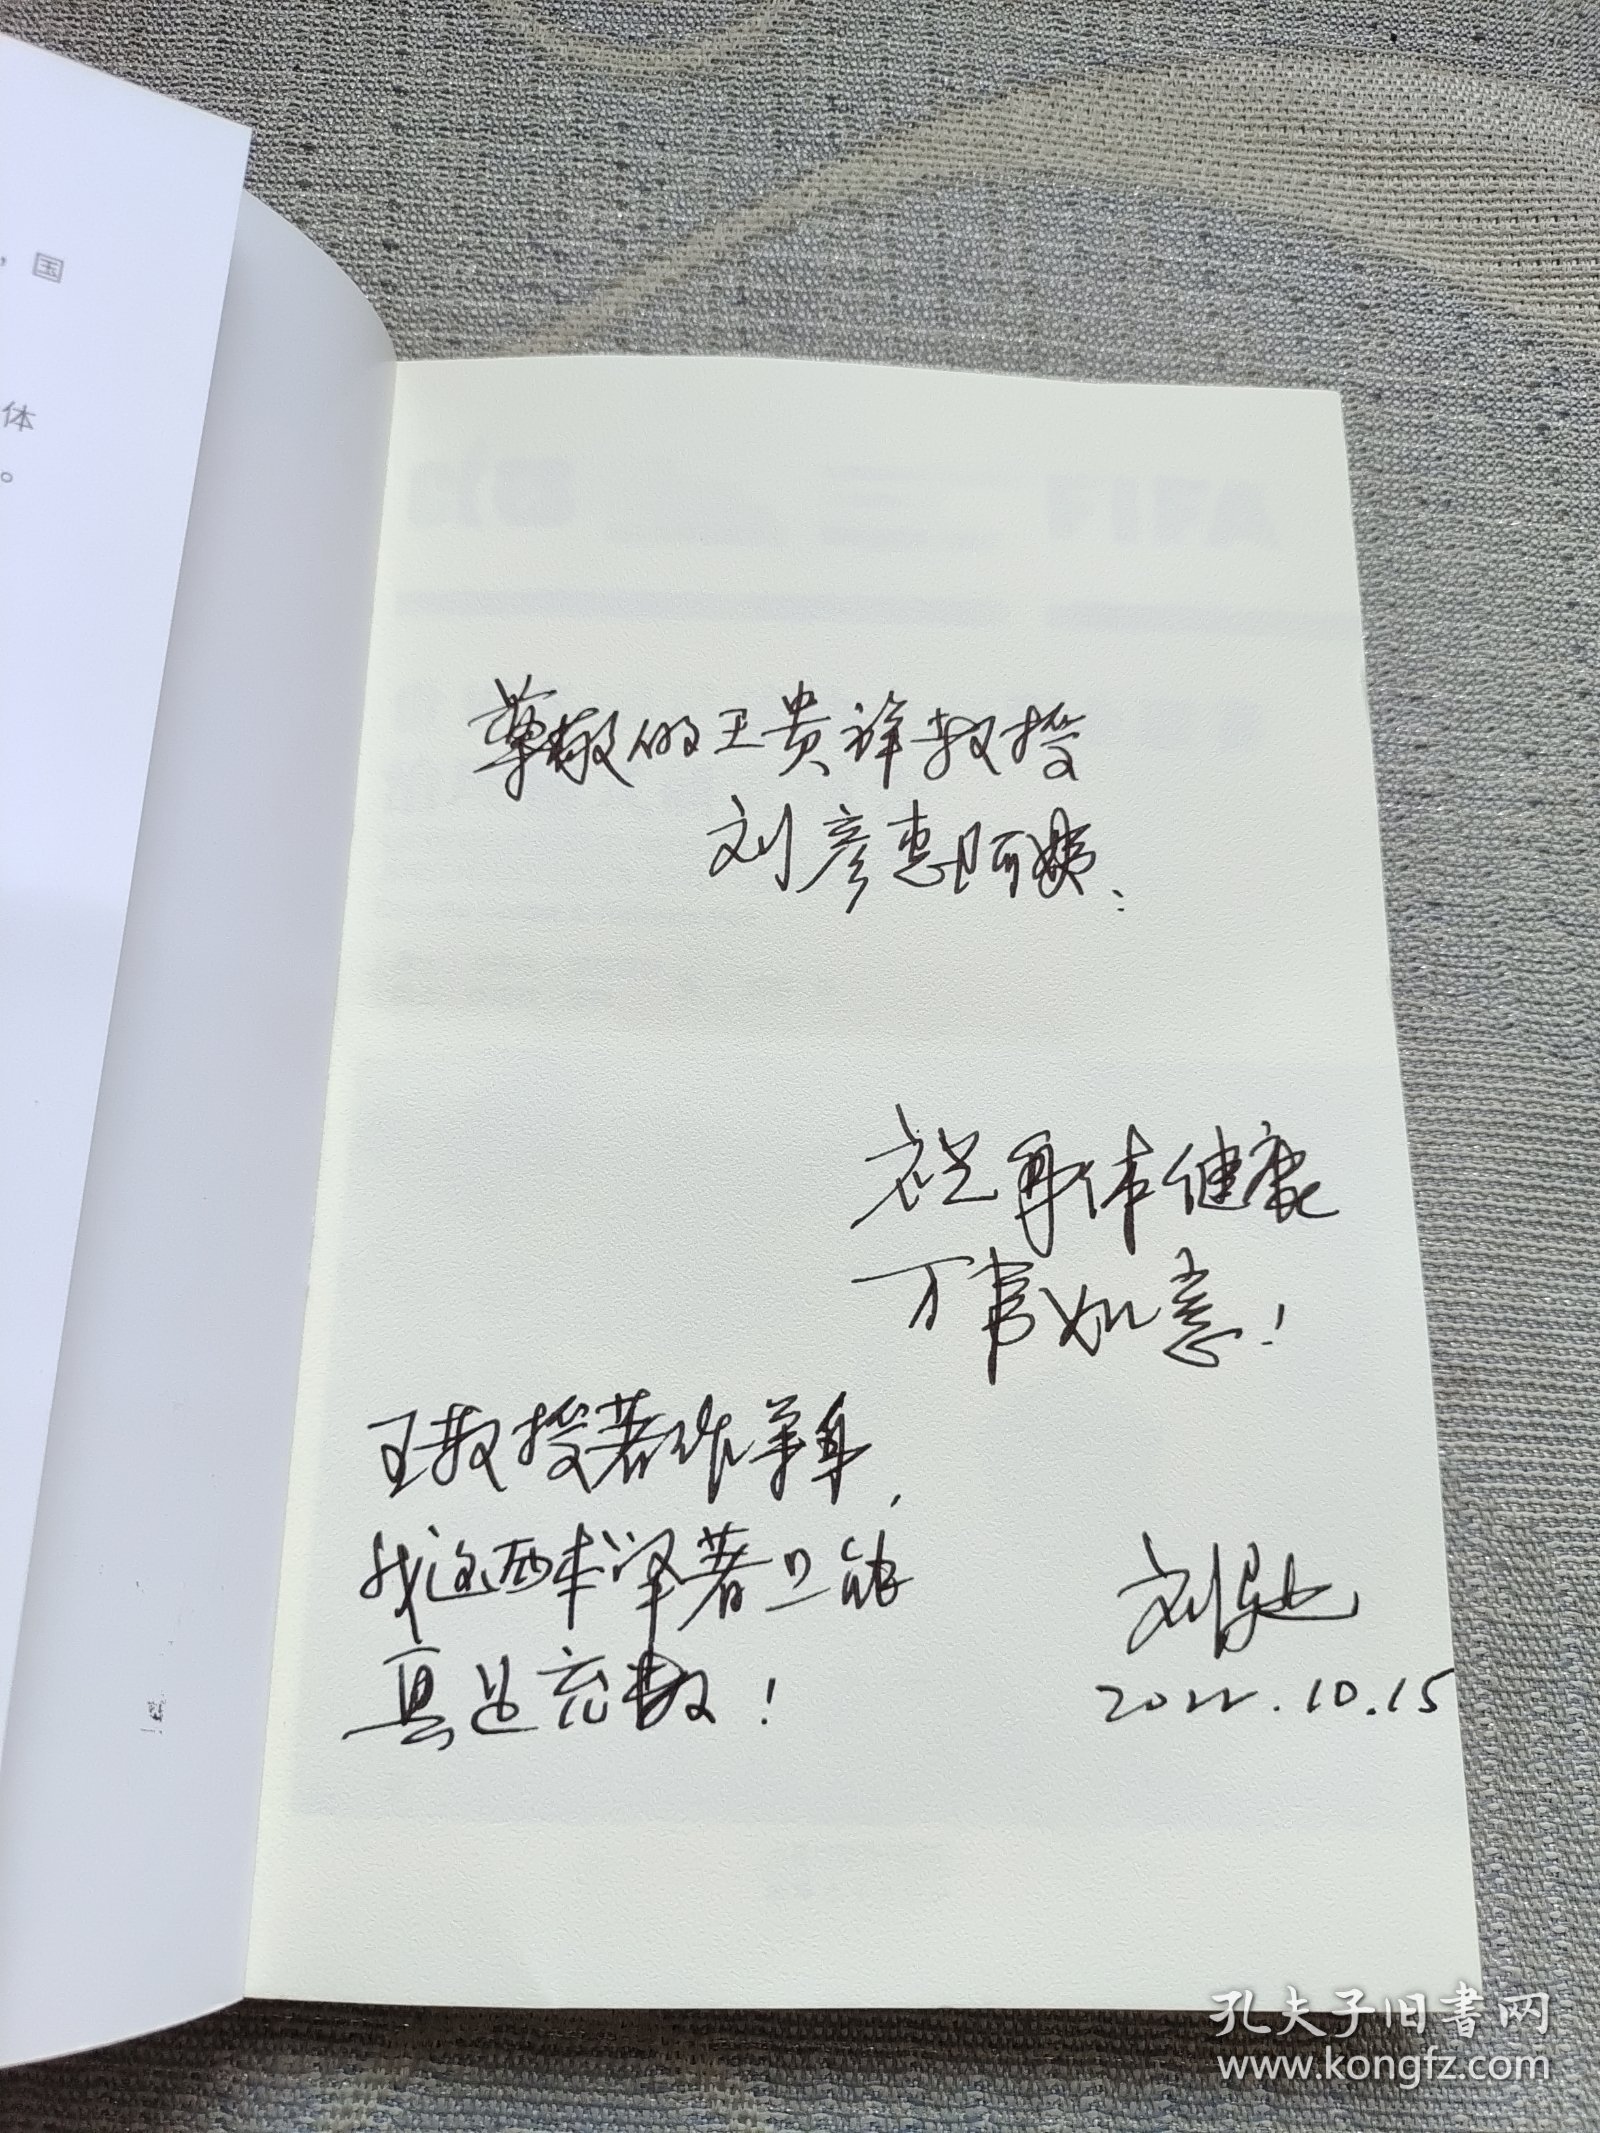 ，国
体
。
尊敬的王贵祥教授
刘彦惠阿姨：
祝身体健康
万事如意！
王教授著作等身，
我这两本译著只能
真是充数！
刘
2022.10.15
孔夫子旧书网
www.kongfz.com